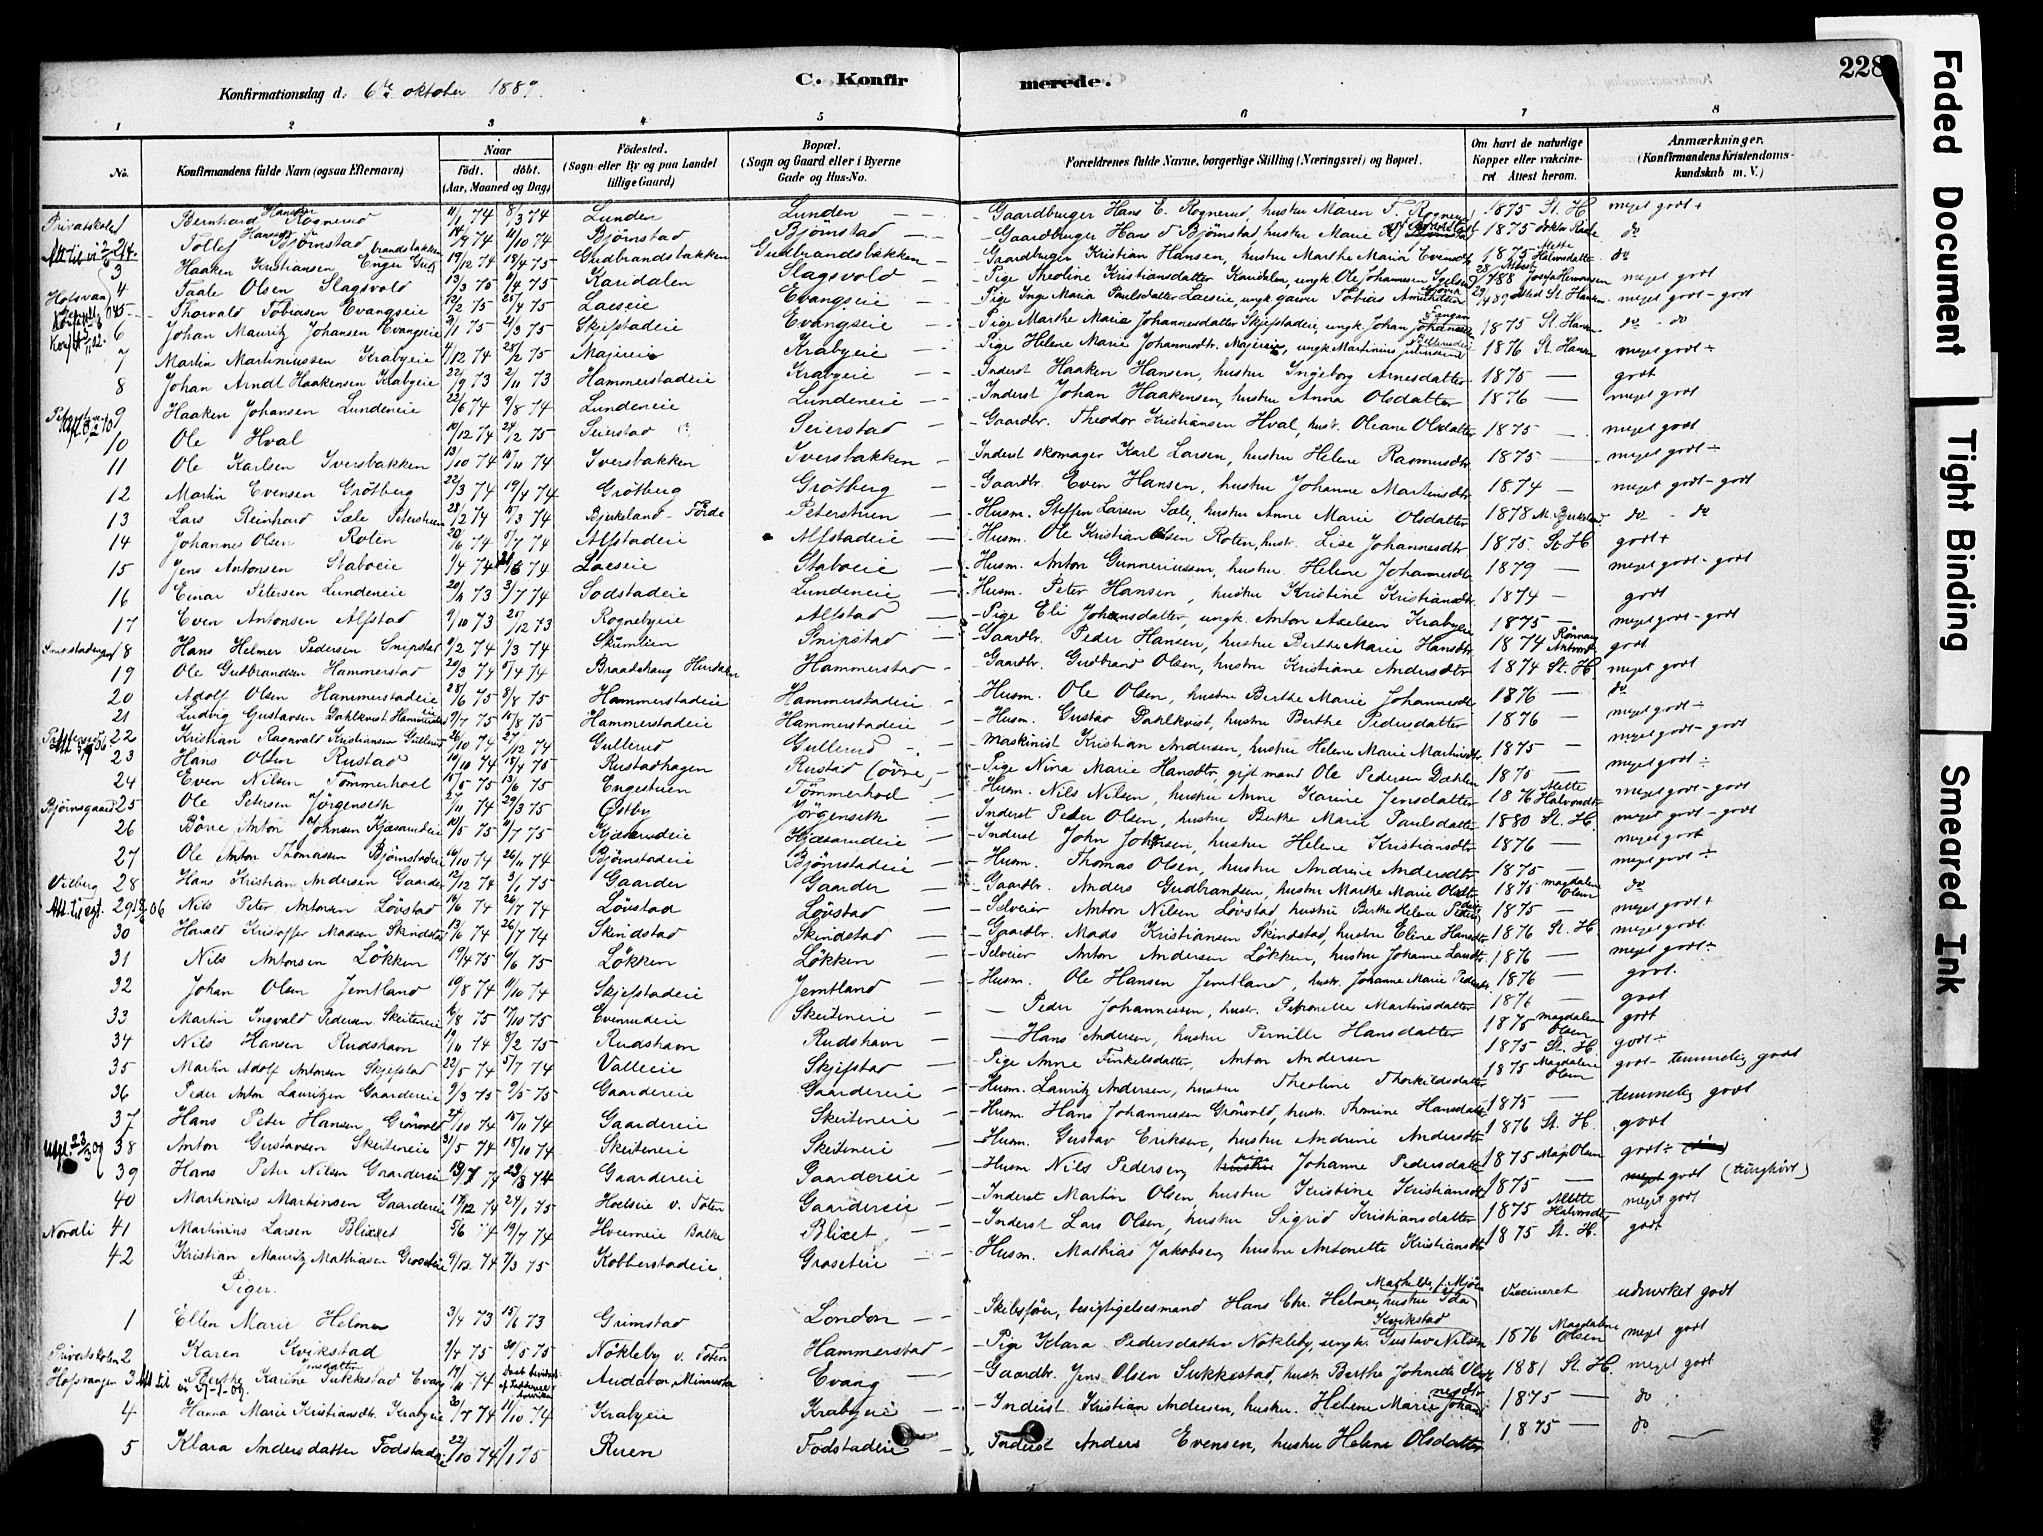 Konfirmationsdag d. 6te oktober 1889.
C. Konfirmerede.
228
1 2 3 4 5 6 7 8
No.
Konfirmandens fulde Navn (ogsaa Efternavn)
Naar
født. døbt.
(Aar, Maaned og Dag)
Fødested.
(Sogn eller By og paa Landet tillige Gaard)
Bopæl.
(Sogn og Gaard eller i Byerne Gade og Hus-No.
Forældrenes fulde Navne, borgerlige Stilling (Næringsvei) og Bopæl.
Om havt de naturlige Kopper eller vakcineret Attest herom.
Anmærkninger.
(Konfirmandens Kristendomskundskab m. V.)
Privatskole 1 Bernhard Hansen Rognerud 74 8/3 74 Lunden Lunden Gaardbruger Hans E. Rognerud, hustru Maren 1875 St. H meget godt +
2 Tollef Hansen Bjørnstad 74 11/10 74 Bjørnstad Bjørnstad Gaardbruger Hans Bjørnstad, hustru Marie 1875 do
3 Haaken Kristiansen Enger 19/12 74 18/4 75 Gudbrandsbakken Gudbrandsbakken Gaardbruger Kristian Hansen, hustru Marthe Maria Evensdt 1875 do
Hofsvan 4 Taale Olsen Slagsvold 13/3 75 75 Karidalen Slagsvold Pige Theoline Kristiansdatter Karidalen, ungk. Ole Johannesen meget godt
5 Thorvald Tobiasen Evangseie 12/2 75 25/4 75 Laeseie Evangseie Pige Inge Maria Paulsdatter Laeseie, ungk. Tobias Amundsen meget godt - godt
6 Johan Mauritz Johansen Evangseie 75 2/3 75 Skjefstadeie Evangseie Pige Marthe Maria Johannesdatter Skjefstadeie, ungk. Johan Johansen 1875 St. Hansen do - do
7 Martin Martiniussen Krabyeie 4/12 74 28/2 75 Majereie Krabyeie Pige Helene Marie Johannesdtr. Majereie, ungk. Martinius 1876 St. Hansen meget godt ÷
8 Johan Arndt Haakensen Krabyeie 22/9 73 2/11 73 Hammerstadeie Krabyeie Inderst Haaken Hansen, hustru Ingeborg Arnesdatter 1875 — godt
9 Haaken Johansen Lundeneie 22/6 74 9/8 74 Lundeneie Lundeneie Inderst Johan Haakensen, hustru Anna Olsdatter 1876 — meget godt
10 Ole Hval 10/12 74 24/2 75 Seierstad Seierstad Gaardbr. Theodor Kristiansen Hval, hust. Oleane Olsdatter 1875 — meget godt
11 Ole Karlsen Iversbakken 13/10 74 15/11 74 Iversbakken Iversbakken Inderst skomager Karl Larsen, hustru Helene Rasmusdtr 1875 — meget godt ÷
12 Martin Evensen Grøtberg 22/3 74 19/4 74 Grøtberg Grøtberg Gaardbr. Even Hansen, hustru Johanne Martinsdtr 1874 — meget godt - godt
13 Lars Reinhard Sæle Peterstuen 28/2 74 15/3 74 Bjerkeland - Førde Peterstuen Husm. Steffen Larsen Sæle, hustru Anne Marie Olsdatter 1878 do - do
14 Johannes Olsen Roten 20/6 74 5/7 74 Alfstadeie Alfstadeie Husm. Ole Kristian Olsen Roten, hust. Lise Johannesdtr 1875. St. H godt +
15 Jens Antonsen Staboeie 1/4 74 74 Laeseie Staboeie Husm. Anton Gunneriussen, hustru Helene Johannesdtr 1879 — meget godt - godt
16 Einar Petersen Lundeneie 73 3/7 74 Sodstadeie Lundeneie Husm. Peter Hansen, hustru Kristine Kristiansdtr 1874 — godt
17 Even Antonsen Alfstad 9/10 73 25/12 73 Rognebyeie Alfstad Pige Eli Johansdatter, ungk. Anton Axelsen Krabyeie 1875 — meget godt - godt
18 Hans Helmer Pedersen Snipstad 1/2 74 1/3 74 Skumlien Snipstad Gaardbr. Peder Hansen, hustru Berthe Marie Hansdtr 1874 godt
19 Ole Gudbrandsen Hammerstad 20/3 74 5/4 74 Braadehaug Hurdalen Hammerstad Gaardbr. Gudbrand Olsen, hustru Kristiane Andersdtr 1874 St. H meget godt
20 Adolf Olsen Hammerstadeie 28/6 75 8/8 75 Hammerstadeie Hammerstadeie Husm. Ole Olsen, hustru Berthe Marie Johannesdtr 1876 — do
21 Ludvig Gustavsen Dahlkvist Hammerstadeie 9/7 75 15/8 75 Hammerstadeie Hammerstadeie Husm. Gustav Dahlkvist, hustru Berthe Pedersdatter 1876 — meget godt ÷
22 Kristian Ragnvald Kristiansen Gullerud 26/10 74 27/12 74 Gullerud Gullerud Maskinist Kristian Andersen, hustru Helene Marie Martinsdtr 1875 — meget godt - godt
23 Hans Olsen Rustad 10/10 74 18/4 75 Rustadhagen Rustad (øvre) Pige Nina Marie Hansdtr, gift mand Ole Pedersen Dæhlen 1875 — meget godt ÷
24 Even Nilsen Tømmerhoel 15/5 75 13/6 75 Engestuen Tømmerhoel Husm. Nils Nilsen, hustru Anne Karine Jensdatter 1876 meget godt - godt
Bjørnsgaard 25 Ole Petersen Jørgenseth 27/11 74 29/3 75 Østby Jørgenseth Inderst Peder Olsen, hustru Berthe Marie Paulsdatter 1880 St. H. meget godt - godt
26 Bøve Anton Johnsen Kjæsarudeie 10/5 75 11/7 75 Kjæsarudeie Kjæsarudeie Inderst John Johnsen, hustru Helene Kristiansdtr 1876 — meget godt
27 Ole Anton Thomassen Bjørnstadeie 16/10 74 26/11 74 Bjørnstadeie Bjørnstadeie Husm. Thomas Olsen, hustru Andrine Andersdtr 1875 — meget godt ÷
Vilberg 28 Hans Kristian Andersen Gaarder 12/12 74 3/1 75 Gaarder Gaarder Gaardbr. Anders Gudbrandsen, hustru Marthe Marie Olsdtr 1875 Magdalene Olsen do
29 Nils Peter Antonsen Løvstad 14/6 74 26/7 74 Løvstad Løvstad Selveier Anton Nilsen Løvstad, hustru Berthe Helene Peders 1875 — meget godt +
30 Harald Kristoffer Madsen Skindstad 13/6 74 26/7 74 Skindstad Skindstad Gaardbr. Mads Kristiansen Skindstad, hustru Eline Hansdtr 1876 St. H. meget godt
31 Nils Antonsen Løkken 19/4 75 6/6 75 Løkken Løkken Selveier Anton Andersen Løkken, hustru Johanne Larsdtr 1876 — meget godt ÷
32 Johan Olsen Jemtland 19/8 74 4/10 74 Skjefstadeie Jemtland Husm. Ole Hansen Jemtland, hust. Johanne Marie Pedersdtr 1876 — godt.
33 Martin Ingvald Pedersen Skeitereie 6/8 75 17/10 75 Evenrudeie Skeitereie — Peder Johannessen, hust. Petronelle Martinsdatter 1876 — godt
34 Nils Hansen Rudshavn 19/11 74 9/2 75 Rudshavn Rudshavn — Hans Andersen, hustru Pernille Hansdatter 1875 Magdalene Olsen godt
35 Martin Adolf Antonsen Skjefstad 22/5 74 5/7 74 Valleeie Skjefstad Pige Anne Finkelsdatter, Anton Andersen 1875 St. H. godt ÷
36 Peder Anton Lauritzen Gaardereie 9/3 75 9/5 75 Gaardereie Gaardereie Husm. Lauritz Andersen, hustru Theoline Thorkildsdatter 1875 Magdalene Olsen godt - temmelig godt
37 Hans Peter Hansen Grønvold 24/10 74 15/11 74 Gaardereie Skeitereie Husm Hans Johannessen Grønvold, hust. Thonine Hansdatter 1875 — temmelig godt
38 Anton Gustavsen Skeitereie 31/5 74 18/10 74 Skeitereie Skeitereie Husm. Gustav Eriksen, hustru Andrine Andersdtr 1876 St. H. godt
39 Hans Peter Nilsen Gaardereie 74 23/8 74 Gaardereie Gaardereie Husm Nils Pedersen, hustru Johanne Pedersdatter 1875 Maj. Olsen godt ÷
40 Martinius Martinsen Gaardereie 17/12 74 24/1 75 Hoelseie v. Toten Gaardereie Inderst Martin Olsen, hustru Kristine Kristiansdtr 1875 — meget godt (tunghørt)
Nordli 41 Martinius Larsen Blixet 5/6 74 19/7 74 Hveemeie Balke Blixet Inderst Lars Olsen, hustru Sigrid Kristiansdatter 1875 meget godt
42 Kristian Mauritz Mathiasen Groseteie 9/12 74 7/3 75 Kobberstadeie Groseteie Husm. Mathias Jakobsen, hustru Antonette Kristiansdtr 1875 St. H. godt
Piger.
1 Ellen Marie Helmer 3/4 73 15/6 73 Grimstad London Skibsfører, besigtigelsesmand Hans Chr. Helmer, hustru Ida Mathilde f. Mjøen Vaccineret udmærket godt
Privatskolen 2 Karen Kvikstad 4/4 75 30/5 75 Nøkleby v. Toten Hammerstad Pige Klara Pedersdatter Nøkleby, ungk. Gustav Nilsen Kvikstad 1876 Magdalene Olsen meget godt
Hofsvangen 3 Berthe Karine Jensdatter Sukkestad Evang 19/11 74 Audubon, Minnesota Evang Gaardbr. Jens Olsen Sukkestad, hust. Berthe Johnette Olsdtr 1881 St. H. meget godt
4 Hanna Marie Kristiansdtr. Krabyeie 20/7 74 11/10 74 Krabyeie Krabyeie Inderst Kristian Andersen, hustru Helene Marie Johannesdtr 1875 — do
5 Klara Andersdatter Fodstadeie 22/10 74 1/1 75 Ruen Fodstadeie Inderst Anders Evensen, hustru Helene Olsdatter 1875 — do
Faded Document
Tight Binding
Smeared Ink